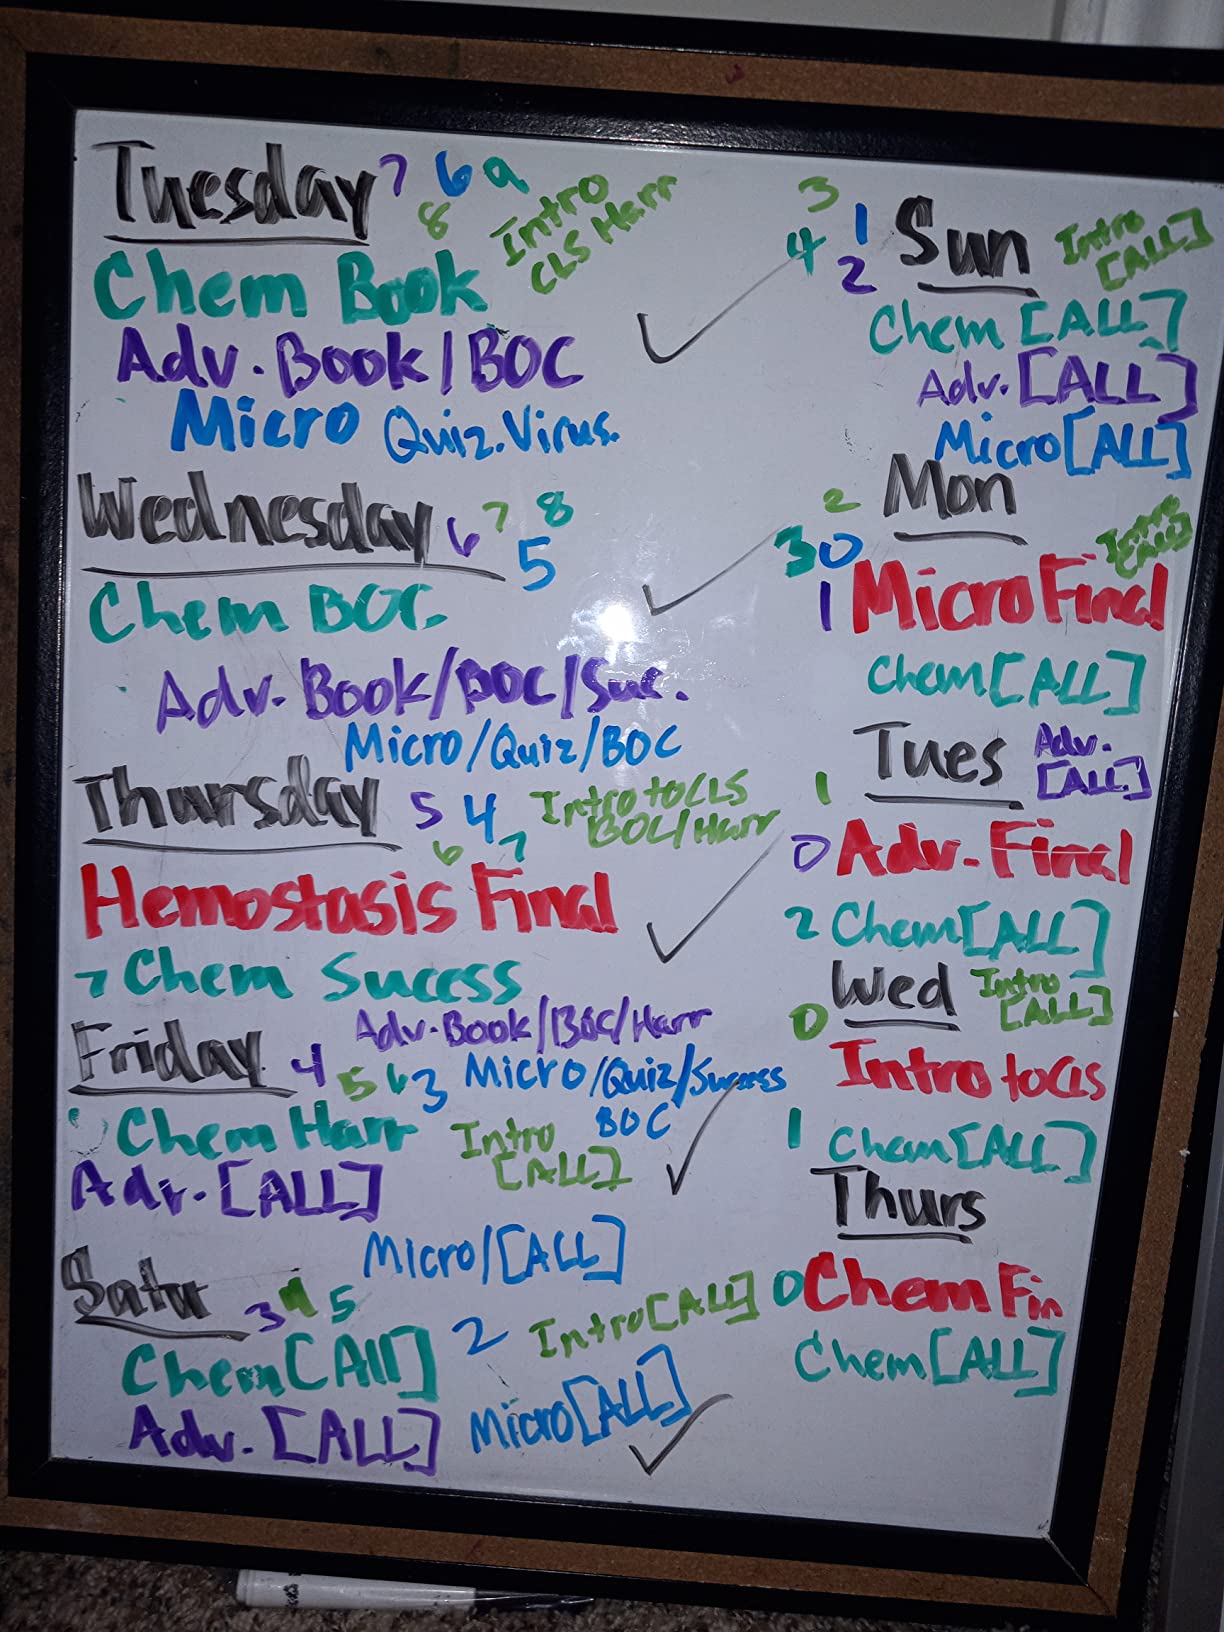 Tuesday 7 6 9
8 Intro
CLS Harr
Chem Book
Adv. Book/BOC
Micro Quiz. Virus.
Wednesday 6 7 8
5
Chem BOC
Adv. Book/BOC/Suc.
Micro/Quiz/BOC
Thursday 5 4 Intro to CLS
6 7 BOC/Harr
Hemostasis Final
7 Chem Sucess
Adv. Book/BOC/Harr
Friday 4 5 6 3 Micro/Quiz/Success
BOC
Chem Harr Intro
[ALL]
Adv. [ALL]
Micro/[ALL]
Satu 3 4 5
2 Intro[ALL]
Chem[All]
Adv. [ALL] Micro[ALL]
3
4 1 Sun Intro
2 [ALL]
Chem [ALL]
Adv. [ALL]
Micro[ALL]
2 Mon
3 0 Intro
1 Micro Final
Chem[ALL]
Tues Adv.
1 [ALL]
0 Adv. Final
2 Chem[ALL]
Wed Intro
0 [ALL]
Intro to CLS
1 Chem[ALL]
Thurs
0 Chem Fin
Chem[ALL]